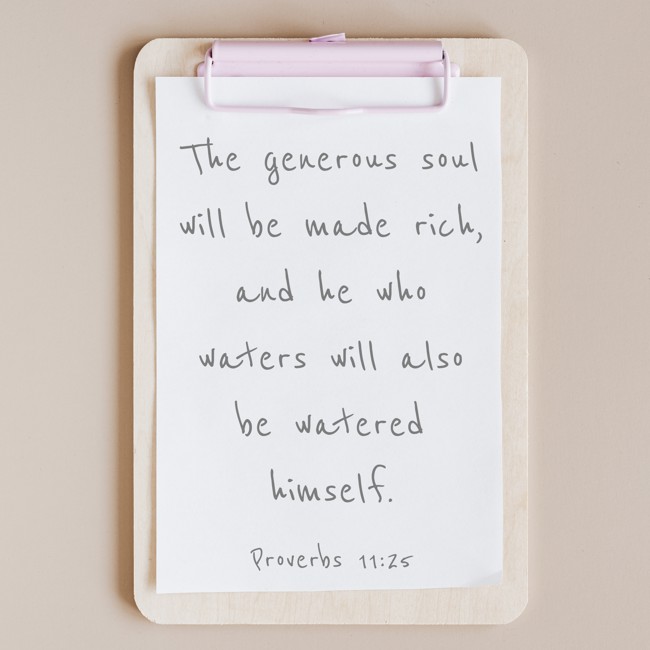 The generous soul
will be made rich,
and he who
waters will also
be watered
himself.
Proverbs 11:25